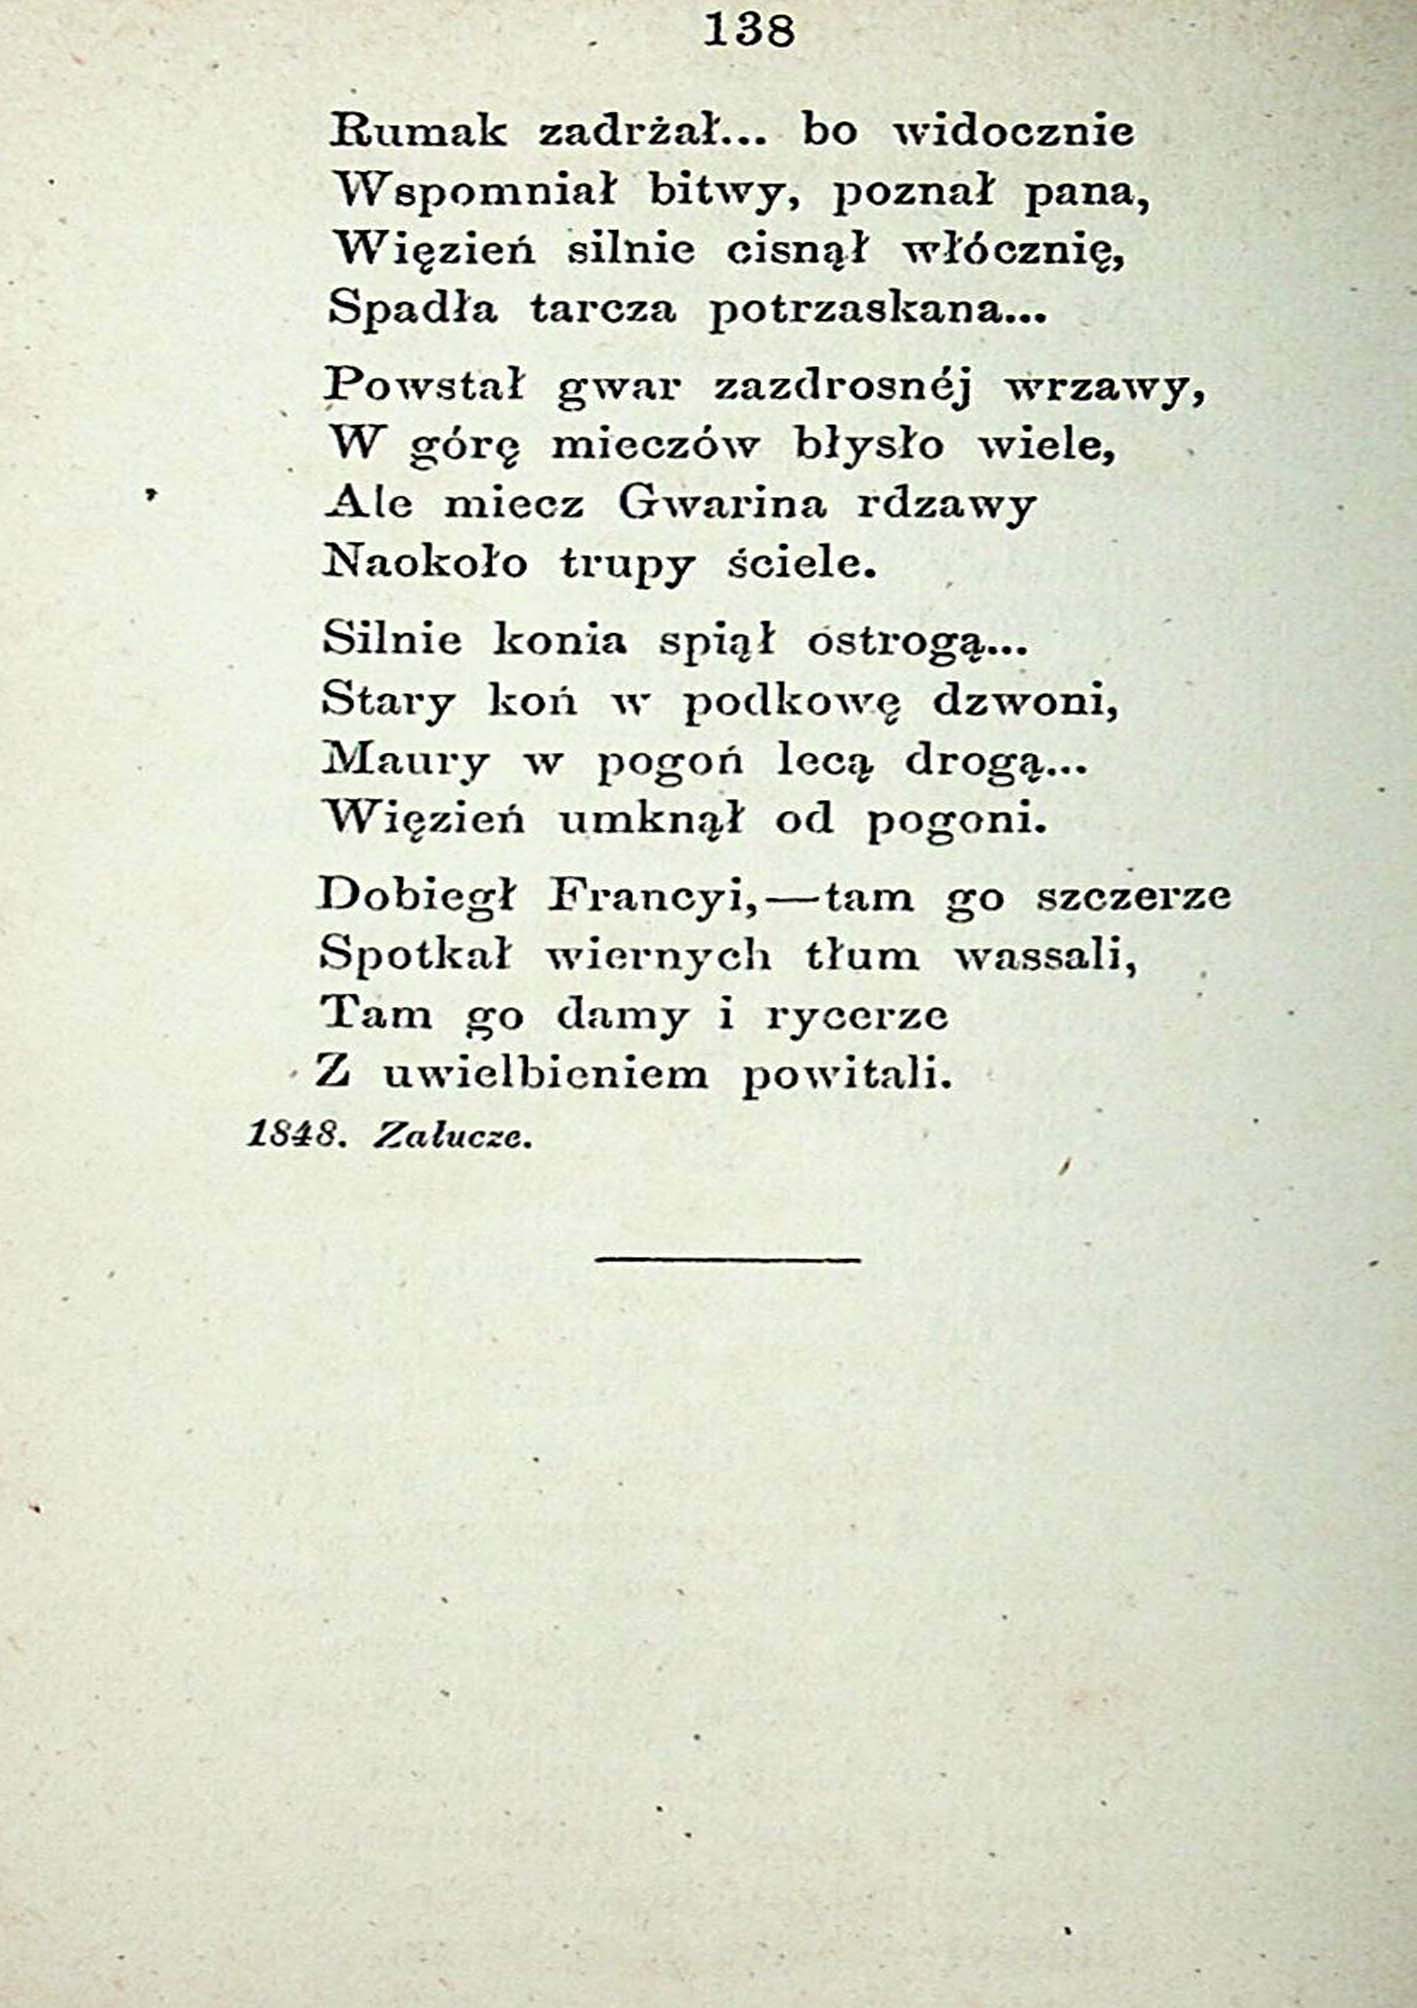 138
Rumak zadrżał... bo widocznie
Wspomniał bitwy, poznał pana,
Więzień silnie cisnął włócznię,
Spadła tarcza potrzaskana...
Powstał gwar zazdrosnéj wrzawy,
W górę mieczów błysło wiele,
Ale miecz Gwarina rdzawy
Naokoło trupy ściele.
Silnie konia spiął ostrogą...
Stary koń w podkowę dzwoni,
Maury w pogoń lecą drogą...
Więzień umknął od pogoni.
Dobiegł Francyi,—tam go szczerze
Spotkał wiernych tłum wassali,
Tam go damy i rycerze
Z uwielbieniem powitali.
1848. Załucze.